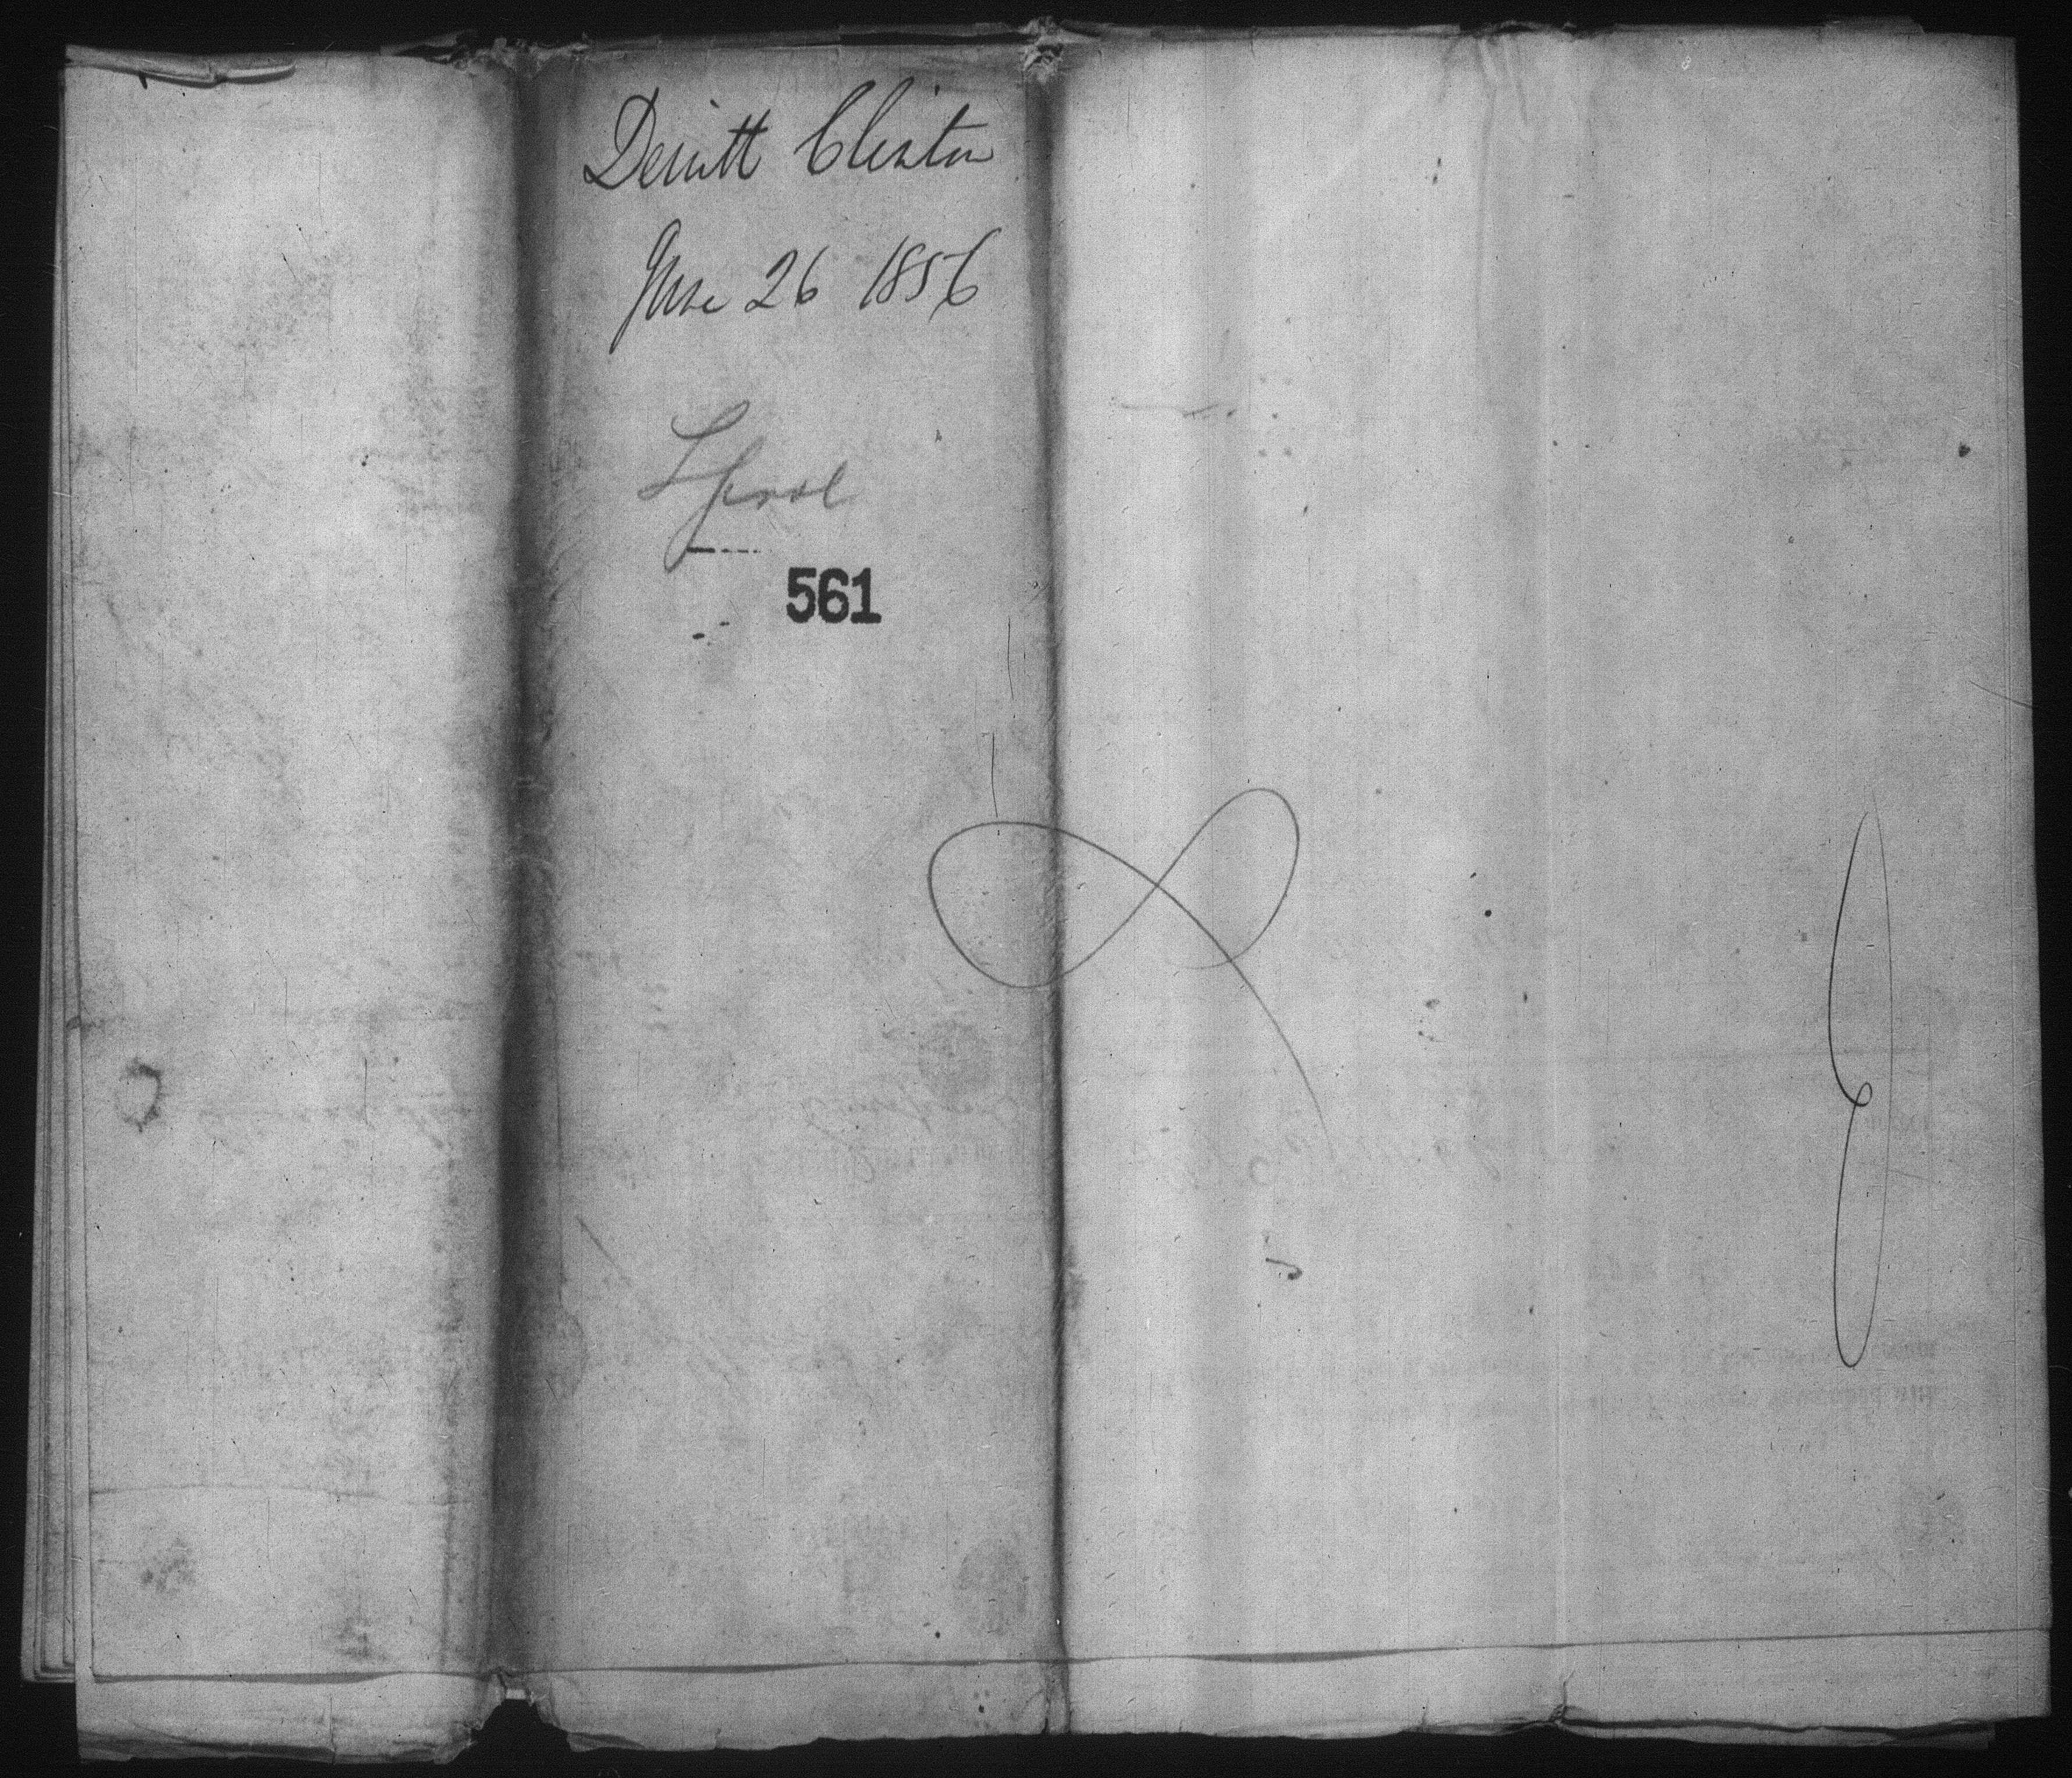 Dewitt Clinton
June 26 1856
561